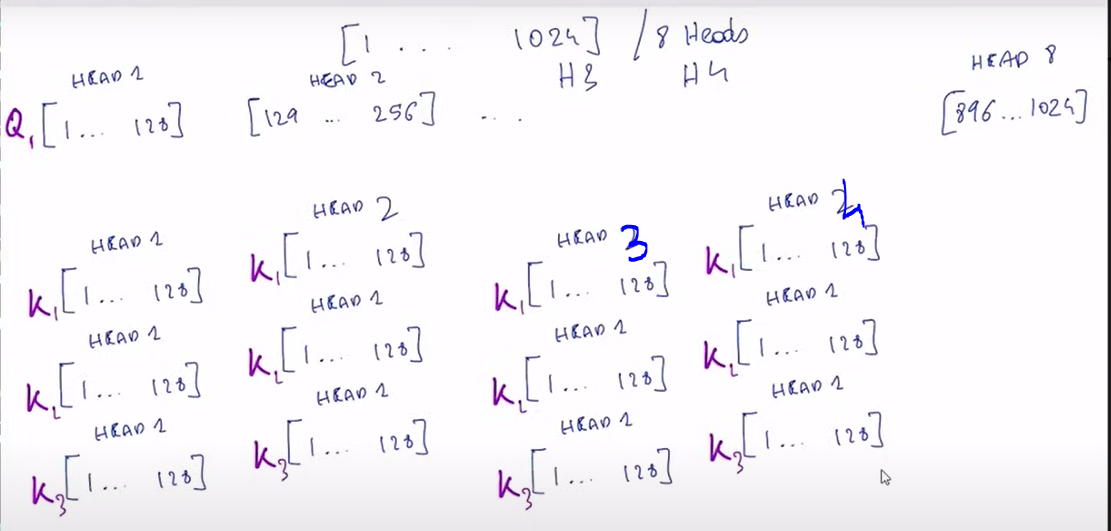 [1 . . . 1024] / 8 Heads
HEAD 1 HEAD 2 H3 H4 HEAD 8
Q1 [1... 128] [129 ... 256] .... [896...1024]
HEAD 1 HEAD 2 HEAD 3 HEAD 4
K1 [1... 128] K1 [1... 128] K1 [1... 128] K1 [1... 128]
HEAD 1 HEAD 1 HEAD 1 HEAD 1
K2 [1... 128] K2 [1... 128] K2 [1... 128] K2 [1... 128]
HEAD 1 HEAD 1 HEAD 1 HEAD 1
K3 [1... 128] K3 [1... 128] K3 [1... 128] K3 [1... 128]